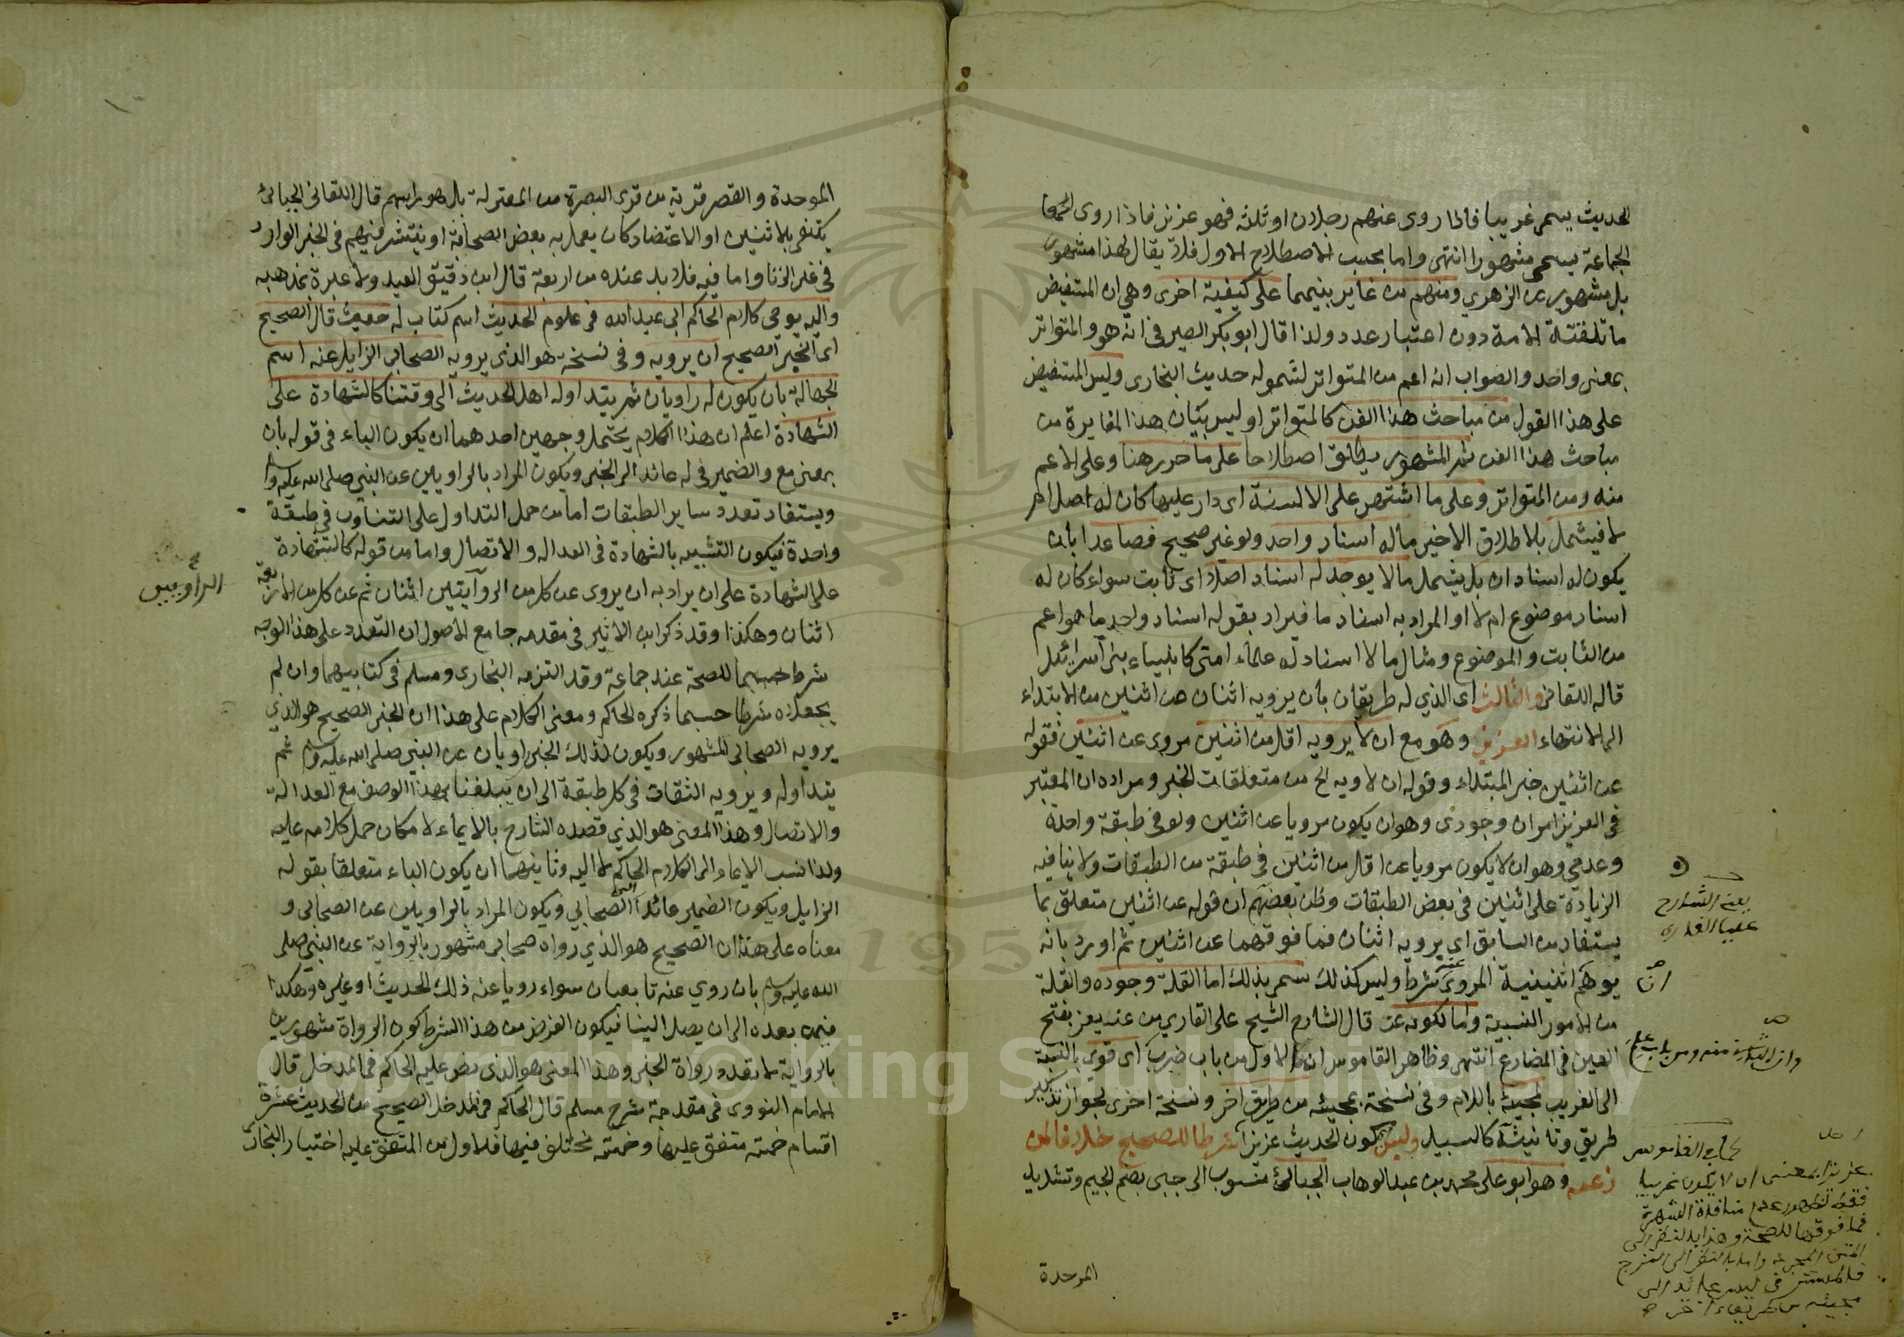 الحديث يسمى غريبا فاذا روى عنهم رجلان او ثلثه فهو عزيز فاذا روى
الجماعة يسمى مشهورا انتهى واما بحسب الاصطلاح الاول فلا يقال لهذا مشهور
بل مشهور عن الزهري ومنهم من غاير بينهما على كيفية اخرى وهي ان المستفيض
ما تلقته الامة دون اعتبار عدد ولذا قال ابو بكر الصيرفي انه هو والمتواتر
بمعنى واحد والصواب انه اعم من المتواتر لشموله حديث البخارى وليس المستفيض
على هذا القول من مباحث هذا الفن كالمتواتر او ليس بيان هذا المغايرة من
مباحث هذا الفن ثم المشهور يطلق اصطلاحا على ما حرر هنا وعلى الاعم
منه ومن المتواتر وعلى ما اشتهر على الالسنة اى دار عليها كان له اصل ام
لا فيشمل بالاطلاق الاخير ماله اسناد واحد ولو غير صحيح فصاعدا بأن
يكون له اسنادان بل يشمل ما لا يوجد له اسناد اصلا اى ثابت سواء كان له
اسناد موضوع ام لا او المراد به اسناد ما فيراد بقوله اسناد واحد ما هو اعم
من الثابت والموضوع ومثال ما لا اسناد له علماء امتى كانبياء بنى اسرائيل
قاله اللقاني والثالث اى الذي له طريقان بأن يرويه اثنان عن اثنين من الابتداء
الى الانتهاء العزيز وهو مع ان لا يرويه اقل من اثنين مروى عن اثنين فقوله
عن اثنين خبر المبتداء وقوله ان لا يرويه الخ من متعلقات الخبر ومراده ان المعتبر
فى العزيز امران وجودى وهو ان يكون مرويا عن اثنين ولو فى طبقة واحدة
وعدمى وهو ان لا يكون مرويا عن اقل من اثنين فى طبقة من الطبقات ولا ينافيه
الزيادة على اثنين فى بعض الطبقات وظن بعضهم ان قوله عن اثنين متعلق بما
يستفاد من السابق اى يرويه اثنان فما فوقهما عن اثنين ثم اورد بانه
يوهم اثنينية المروى عنه شرط وليس كذلك سمى بذلك اما لقلة وجوده والقلة
من الامور النسبية واما لكونه عز قال الشارح الشيخ على القاري من عز يعز بفتح
العين فى المضارع انتهى وظاهر القاموس ان الاول من باب ضرب اى قوى بالنسبة
الى الغريب لمجيئه باللام وفى نسخة بمجيئه من طريق آخر ونسخة اخرى لجواز تذكير
طريق وتانيثه كالسبيل وليس كون الحديث عزيزا شرطا للصحيح خلافا لمن
زعمه وهو ابو على محمد بن عبد الوهاب الجبائى منسوب الى جبى بضم الجيم وتشديد
الموحدة
يعنى الشارح
عليا القارى
ان
كما فى القاموس
عزيزا بمعنى ان لا يكون غريبا
الموحدة والقصر قرية من قرى البصرة من المعتزلة بل هو رأسهم قال اللقانى الجبائى
يكتفى بالاثنين او الاعتضاد كان يعمل به بعض الصحابة او ينتشر فيهم فى الخبر الوارد
فى غير الزنا واما فيه فلا بد عنده من اربعة قال ابن دقيق العيد ولا عبرة بمذهبه
واليه يومى كلام الحاكم ابى عبد الله فى علوم الحديث اسم كتاب له حيث قال الصحيح
اى الخبر الصحيح ان يرويه وفى نسخة هو الذى يرويه الصحابى الزايل عنه اسم
الجهالة بان يكون له راويان ثم يتداوله اهل الحديث الى وقتنا كالشهادة على
الشهادة اعلم ان هذا الكلام يحتمل وجهين احدهما ان يكون الباء فى قوله بان
بمعنى مع والضمير فى له عائد الى الخبر ويكون المراد بالراويين عن النبى صلى الله عليه وسلم
ويستفاد تعدد ساير الطبقات اما من حمل التداول على التناوب فى طبقة
واحدة فيكون التشبيه بالشهادة فى العدالة والاتصال واما من قوله كالشهادة
على الشهادة على ان يراد به ان يروى عن كل من الروايتين اثنان ثم عن كل من الاربعة
اثنان وهكذا وقد ذكر ابن الاثير فى مقدمه جامع الاصول ان التعدد على هذا الوجه
شرط حسبما للصحة عند جماعة وقد التزمه البخارى ومسلم فى كتابيهما وان لم
يجعلاه شرطا حسبما ذكره الحاكم ومعنى الكلام على هذا ان الخبر الصحيح هو الذي
يرويه الصحابى المشهور ويكون لذلك الخبر راويان عن النبى صلى الله عليه وسلم ثم
يتداوله ويرويه الثقات فى كل طبقة الى ان يبلغنا بهذا الوصف مع العدالة
والاتصال وهذا المعنى هو الذي قصده الشارح بالايماء لامكان حمل كلامه عليه
ولذا نسب الايماء الى كلام الحاكم لا اليه وثانيهما ان يكون الباء متعلقا بقوله
الزايل ويكون الضمير عائدا الى الصحابي ويكون المراد بالراويين عن الصحابى و
معناه على هذا ان الصحيح هو الذي رواه صحابى مشهور بالرواية عن النبى صلى
الله عليه وسلم بان روي عنه تابعيان سواء رويا عنه ذلك الحديث او غيره وهكذا
فيمن بعده الى ان يصل الينا فيكون الغرض من هذا الشرط كون الرواة مشهورين
بالرواية لا تعدد رواة الخبر وهذا المعنى هو الذى نص عليه الحاكم فى المدخل قال
الامام النووى فى مقدمة شرح مسلم قال الحاكم فى المدخل الصحيح من الحديث عشرة
اقسام خمسة متفق عليها وخمسة مختلف فيها فالاول من المتفق عليه اختيار البخارى
الراويين
1957
Copyright © King Saud University